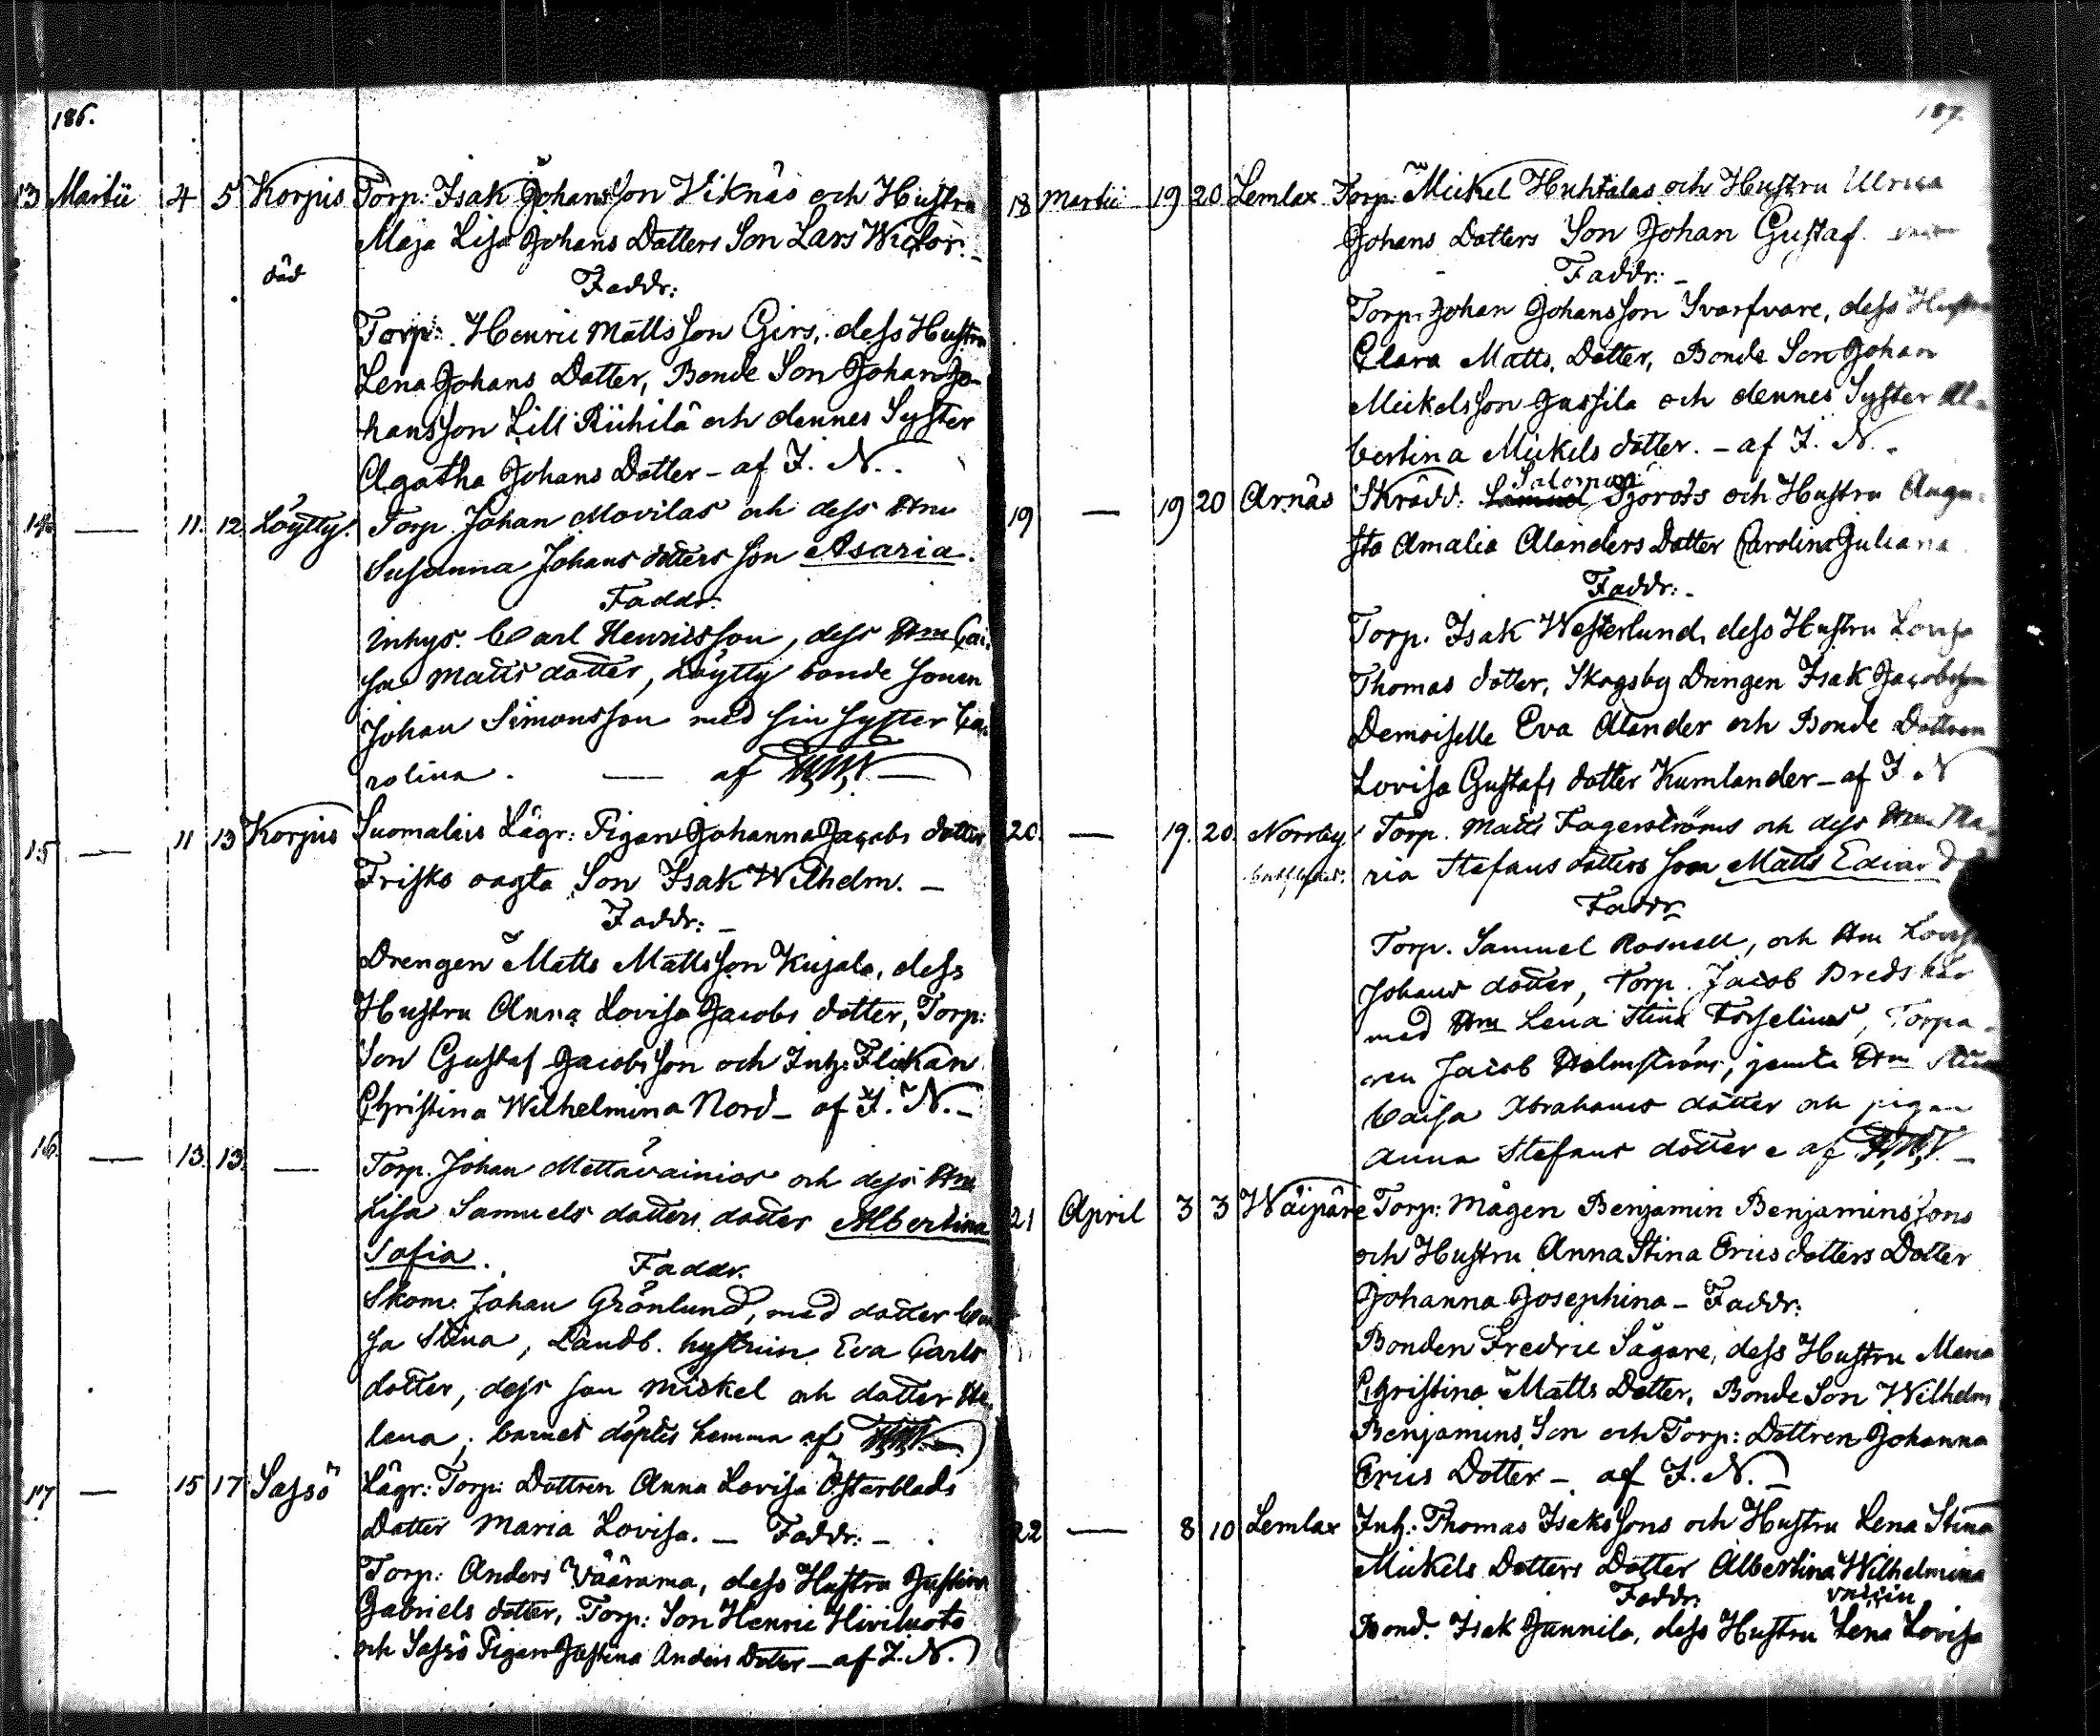 186.
13 Martii 4 5 Korpis Torp: Isak Johansson Viknäs och Hustru
Maja Lisa Johans Dotters Son Lars Wictor. -
död Faddr:
Torp: Henric Mattsson Girs, dess Hustru
Lena Johans Dotter, Bonde Son Johan Jo-
hansson Lill Riihilä och dennes Syster
Agatha Johans Dotter - af I. N. -
14. — 11. 12. Löytty. Torp. Johan Movilas och dess Hru
Susanna Johans dotters son Asaria.
Faddr.
Inhys. Carl Henricsson, dess Hru Cai-
sa Matts dotter, Löytty bonde sonen
Johan Simonsson med sin syster Ca-
rolina. — af
15 — 11 13 Korpis Suomalais Lägr: Pigan Johanna Jacobs dotter
Frisks oägta Son Isak Wilhelm. -
Faddr: -
Drengen Matts Mattsson Kujala, dess
Hustru Anna Lovisa Jacobs dotter, Torp:
Son Gustaf Jacobsson och Inh: Flickan
Christina Wilhelmina Nord - af I. N. -
16. — 13. 13. — Torp. Johan Mettävainios och dess Hru
Lisa Samuels dotters dotter Albertina
Sofia. Faddr.
Skom. Johan Grönlund, med dotter
sa Stina, Landb. hustrun Eva Carls
dotter, dess son Mickel och dotter He-
lena; barnet döptes hemma af
17 — 15 17 Sassö Lägr: Torp: Dottren Anna Lovisa Österblads
Dotter Maria Lovisa. - Faddr: -
Torp: Anders Väärämä, dess Hustru Justina
Gabriels dotter, Torp: Son Henric Hiviluoto
och Sassö Pigan Justina Anders Dotter - af I. N.
187.
18 Martii 19 20 Lemlax Torp: Mickel Huhtalas och Hustru Ulrica
Johans Dotters Son Johan Gustaf.
Faddr: -
Torp: Johan Johansson Svarfvare, dess Hustru
Clara Matts Dotter, Bonde Son Johan
Mickelsson Jussila och dennes Syster Al-
bertina Mickels dotter. - af I. N. -
Salomon
19 — 19 20 Arnäs Skrädd: Samuel Sjoroos och Hustru Augu-
sta Amalia Alanders Dotter Carolina Juliana
Faddr: -
Torp. Isak Westerlund, dess Hustru Lovisa
Thomas dotter, Skogsby Drengen Isak Jacobsson
Demoiselle Eva Alander och Bonde Dottren
Lovisa Gustafs dotter Kumlander - af I. N
20. — 19. 20. Norrby. Torp. Matts Fagerströms och dess Hru Ma-
ria Stefans dotters son Matts Edvard
Faddr
Torp. Samuel Rosnell, och Hru Lovisa
Johans dotter, Torp. Jacob Bredskär
med Hru Lena Stina Forselius, Torpa-
ren Jacob Holmström, jemte Hru Stina
Caisa Abrahams dotter och pigan
Anna Stefans dotter af
21 April 3 3 Wäipäre Torp: Mågen Benjamin Benjaminssons
och Hustru Anna Stina Erics dotters Dotter
Johanna Josephina - Faddr:
Bonden Fredric Sågare, dess Hustru Maria
Christina Matts Dotter, Bonde Son Wilhelm
Benjamins Son och Torp: Dottren Johanna
Erics Dotter - af I. N. -
22 — 8 10 Lemlax Inh: Thomas Isakssons och Hustru Lena Stina
Mickels Dotters Dotter Albertina Wilhelmina
Faddr:
Bond. Isak Jannila, dess Hustru Lena Lovisa